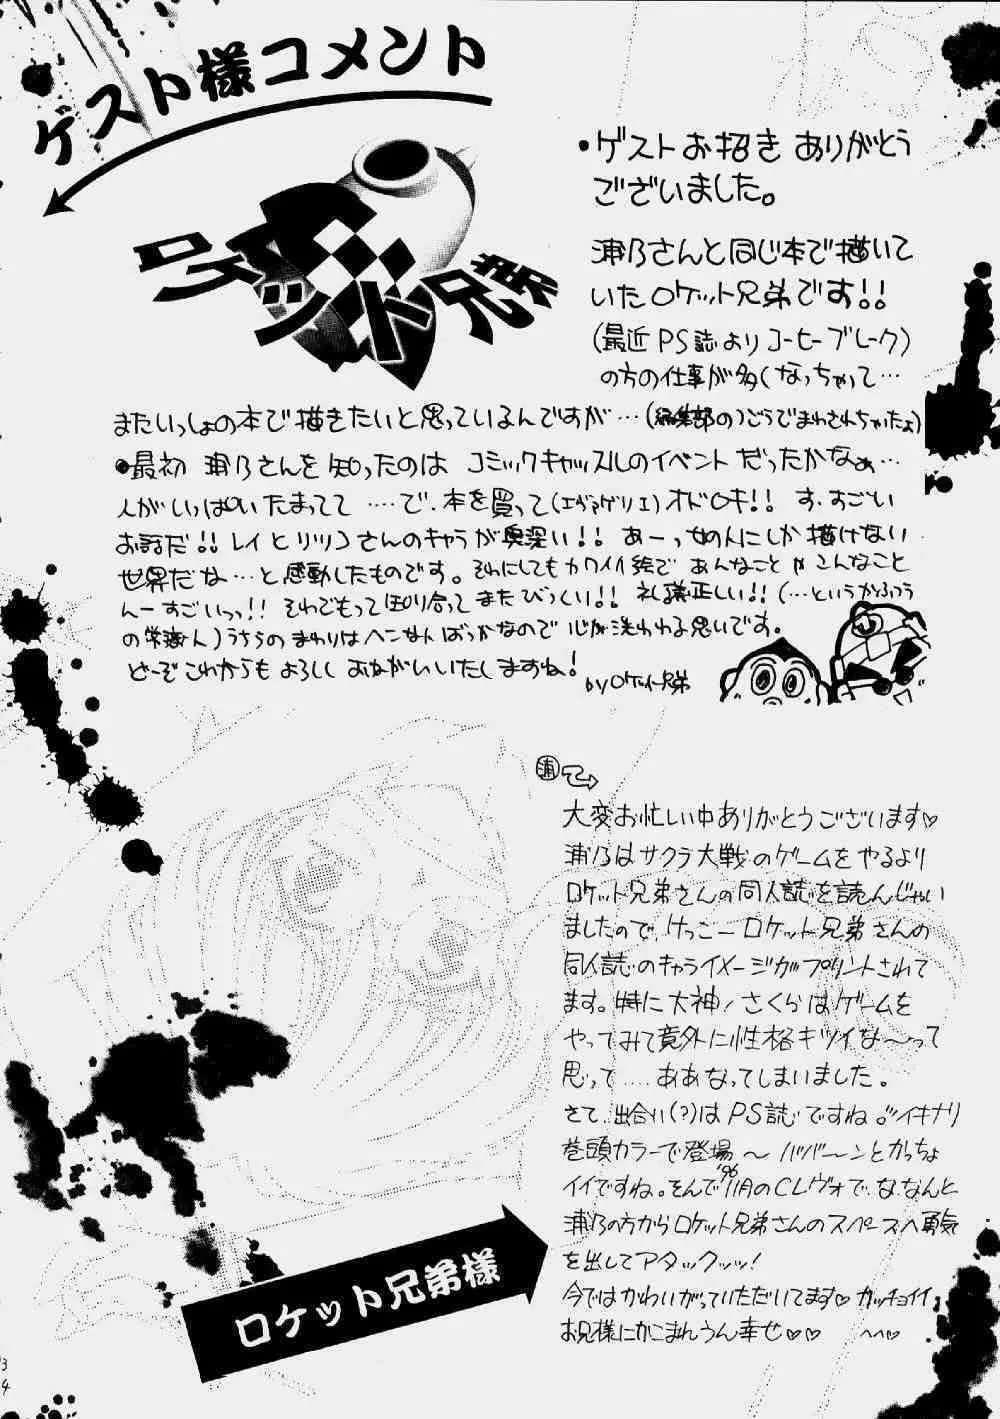 ゲスト様コメント
ロケット兄弟
●ゲストお招き ありがとう
ございました。
浦乃さんと同じ本で描いて
いたロケット兄弟です!!
(最近PS誌よりコーヒーブレーク)
の方の仕事が多くなっちゃって…
またいっしょの本で描きたいと思っているんですが…(編集部のつごうでまわされちゃったよ)
●最初 浦乃さんを知ったのは コミックキャッスルのイベントだったかなぁ…
人がいっぱいたまってて ‥‥で、本を買って(エヴァゲリエ)オドロキ!! す、すごい
お話だ!! レイとリツコさんのキャラが奥深い!! あーっ女の人にしか描けない
世界だな…と感動したものです。それにしてもカワイイ絵で あんなことやこんなこと
んーすごいっっ!! それでもって 知り合って またびっくり!! 礼儀正しい!!(…というかふつう
の常識人)うちらの まわりは ヘンな人ばっかなので 心が洗われる思いです。
どーぞこれからも よろしく おねがいいたしますね!
byロケット兄弟
浦
大変お忙しい中ありがとうございます♡
浦乃はサクラ大戦のゲームをやるより
ロケット兄弟さんの同人誌を読んじゃい
ましたので、けっこーロケット兄弟さんの
同人誌のキャライメージがプリントされて
ます。特に大神!さくらはゲームを
やってみて意外に性格キツイな〜って
思って‥‥ああなってしまいました。
さて、出合い(?)はPS誌ですね。イキナリ
巻頭カラーで登場〜ババーンとかっちょ
イイですね。そんで'96 11月のCレヴォで、な、なんと
浦乃の方からロケット兄弟さんのスペースへ勇気
を出してアタックッッ!
今ではかわいがっていただいてます♡ カッチョイイ
お兄様にかこまれうん幸せ♡♡ ^^♡
ロケット兄弟様
34